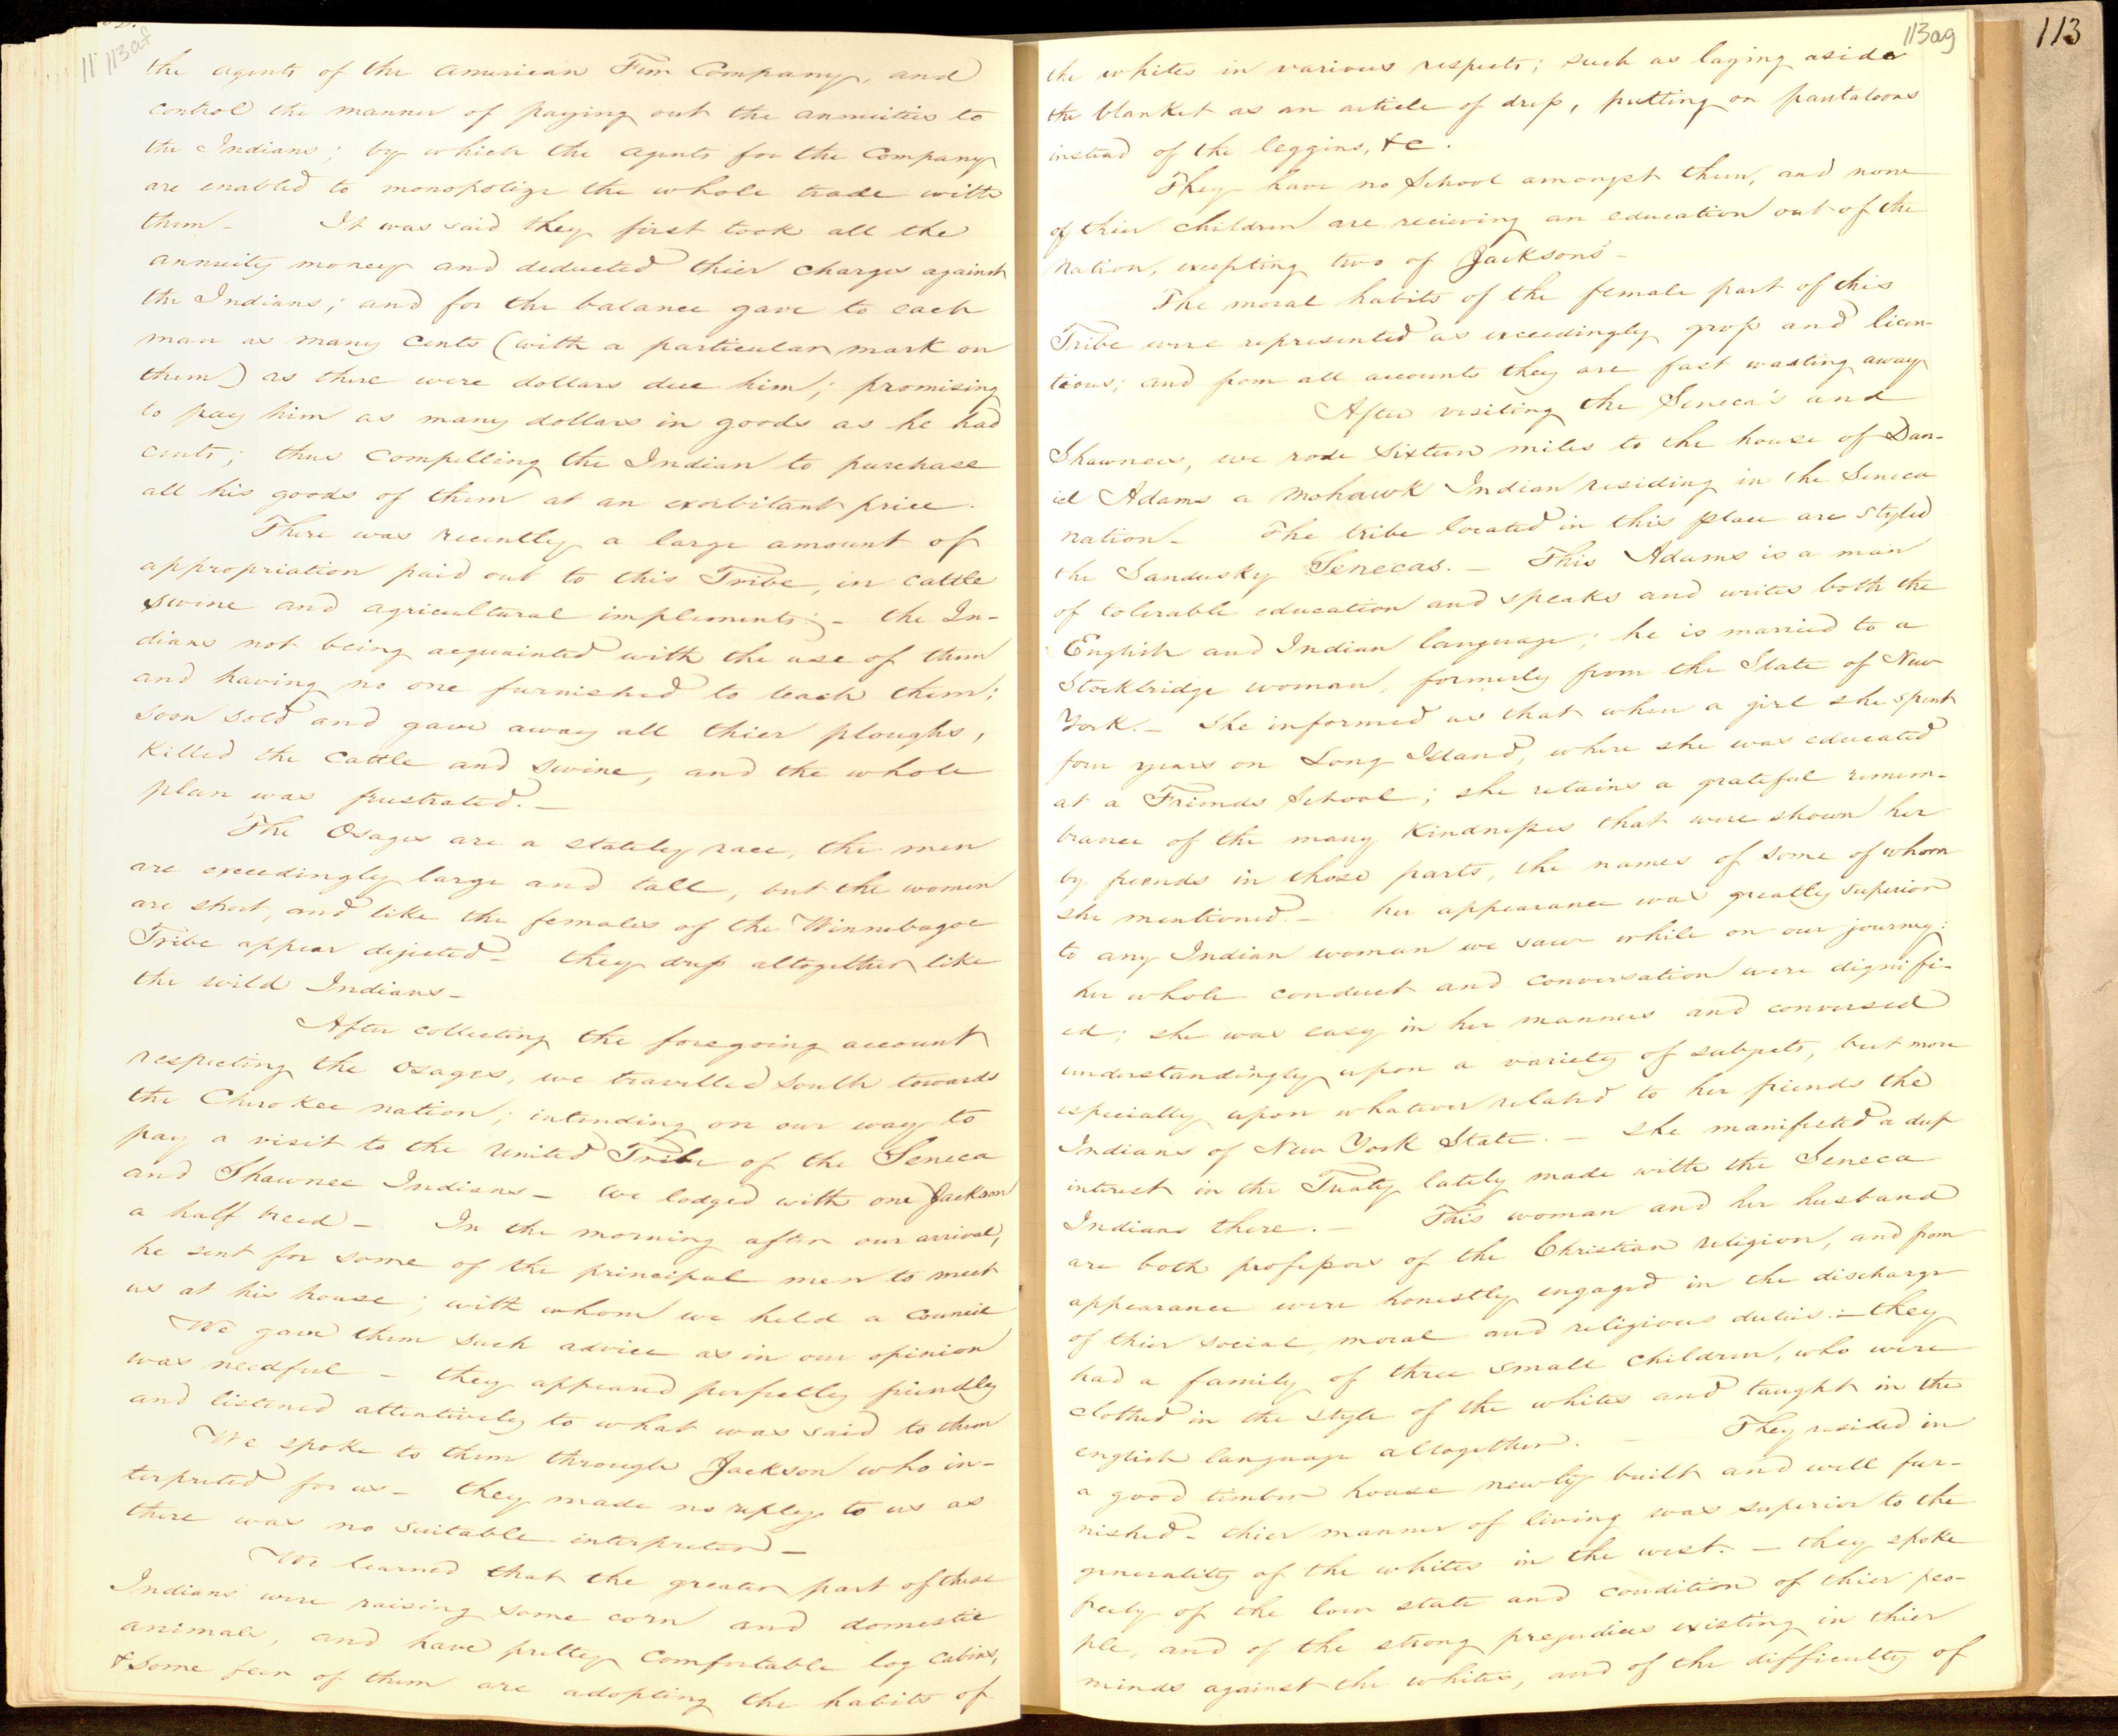 113af
the agents of the American Furr Company, and
control the manner of paying out the annuities to
the Indians; by which the agents for the Company
are enabled to monopolize the whole trade with
them - It was said they first took all the
annuity money and deducted thier charges against
the Indians; and for the balance gave to each
man as many cents (with a particular mark on
them) as there were dollars due him; promising
to pay him as many dollars in goods as he had
cents; thus compelling the Indian to purchase
all his goods of them at an exorbitant price.
There was recently a large amount of
appropriation paid out to this Tribe, in cattle
swine and agricultural implements; - the In-
dians not being acquainted with the use of them
and having no one furnished to teach them;
soon sold and gave away all thier ploughs,
killed the cattle and swine, and the whole
plan was frustrated. -
The Osages are a stately race, the men
are exceedingly large and tall, but the women
are short, and like the females of the Winnebagoe
Tribe appear dejected - they dress altogether like
the wild Indians -
After collecting the foregoing account
respecting the Osages, we travelled south towards
the Cherokee nation; intending on our way to
pay a visit to the United Tribe of the Seneca
and Shawnee Indians - We lodged with one Jackson
a half breed - In the morning after our arrival,
he sent for some of the principal men to meet
us at his house; with whom we held a Council
We gave them such advice as in our opinion
was needful - they appeared perfectly friendly
and listened attentively to what was said to them
We spoke to them through Jackson who in-
terpreted for us - they made no reply to us as
there was no suitable interpreter -
We learned that the greater part of these
Indians were raising some corn and domestic
animals, and have pretty comfortable log cabins,
& some few of them are adopting the habits of
113ag
113
the whites in various respects; such as laying aside
the blanket as an article of dress, putting on pantaloons
instead of the leggins, &c.
They have no School amongst them, and none
of thier children are recieving an education out of the
Nation, excepting two of Jacksons -
The moral habits of the female part of this
Tribe were represented as exceedingly gross and licen-
tious; and from all accounts they are fast wasting away
After visiting the Seneca's and
Shawnees, we rode sixteen miles to the house of Dan-
iel Adams a Mohawk Indian residing in the Seneca
nation - The tribe located in this place are styled
the Sandusky Senecas. - This Adams is a man
of tolerable education and speaks and writes both the
English and Indian language; he is married to a
Stockbridge woman, formerly from the State of New
York. - She informed us that when a girl she spent
four years on Long Island, where she was educated
at a Friends School; she retains a grateful remem-
brance of the many kindnesses that were shown her
by friends in those parts, the names of some of whom
she mentioned. - her appearance was greatly superior
to any Indian woman we saw while on our journey:
her whole conduct and conversation were dignifi-
ed; she was easy in her manners and conversed
understandingly upon a variety of subjects, but more
especially upon whatever related to her friends the
Indians of New York State. - She manifested a deep
interest in the Treaty lately made with the Seneca
Indians there. - This woman and her husband
are both professors of the Christian religion, and from
appearance were honestly engaged in the discharge
of thier social, moral and religious duties: - they
had a family of three small children, who were
clothed in the style of the whites and taught in the
english language altogether. - They resided in
a good timber house newly built and well fur-
nished - thier manner of living was superior to the
generality of the whites in the west. - they spoke
freely of the low state and condition of thier peo-
ple, and of the strong prejudices existing in thier
minds against the whites, and of the difficulty of